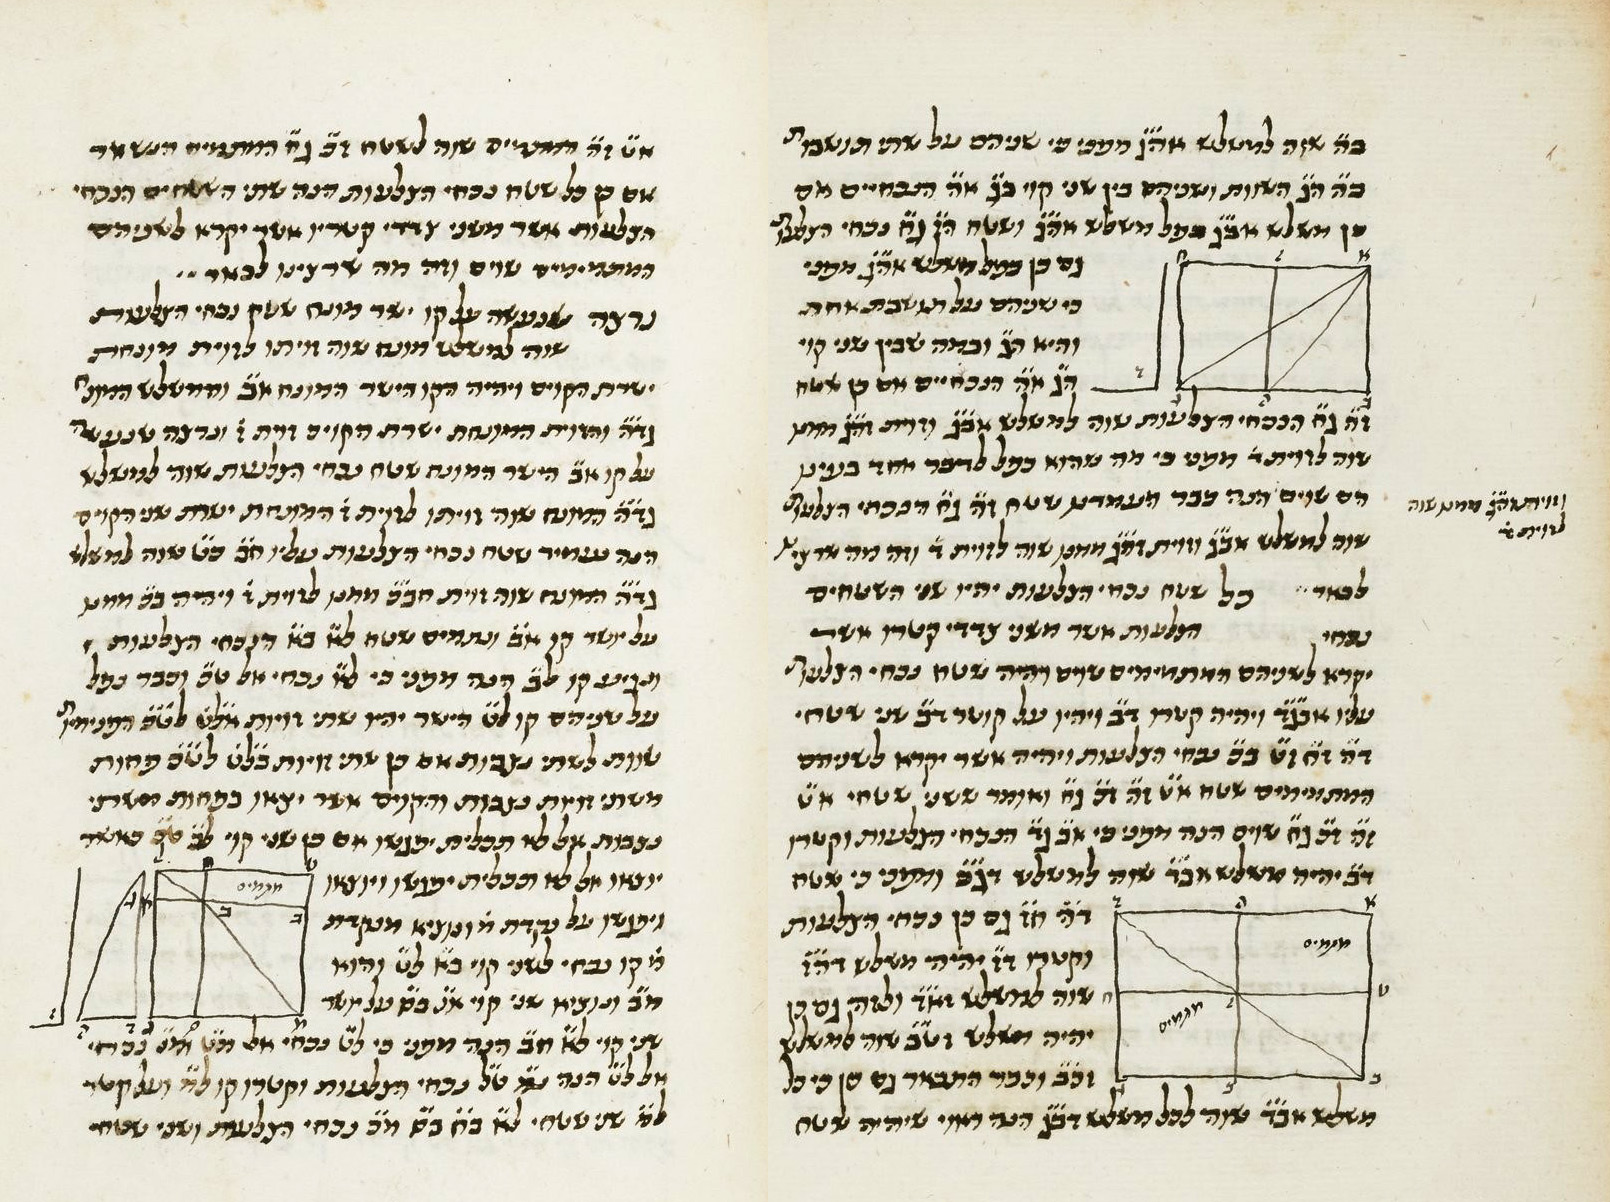 בה שוה למשלש אהג מפני כי שניהם על שתי תושבות
בה הג השוות ושניהם בין שני קוי בג אה הנכחיים אם
כן משלש אבג כפל משלש אהג ושטח הז גח נכחי הצלעות
גם כן כפל משלש אהג מפני
כי שניהם על תושבת אחת
והיא הג ובמה שבין שני קוי
הג אח הנכחיים אם כן שטח
זה גח הנכחי הצלעות שוה למשלש אבג וזוית זהג ממנו
שוה לזוית ד מפני כי מה שהוא כפל לדבר אחד בעינו
הם שוים הנה כבר העמדנו שטח זה גח הנכחי הצלעות
וזוית זהג ממנו שוה
לזוית ד
שוה למשלש אבג וזוית זהג ממנו שוה לזוית ד וזה מה שרצינו
לבאר
כל שטח נכחי הצלעות יהיו שני השטחים
נכחי
הצלעות אשר משני צדדי קטרו אשר
יקרא לשניהם המתמימים שוים ויהיה שטח נכחי הצלעות
עליו אבגד ויהיה קטרו דב ויהיו על קוטר דב שני שטחי
דה זח וט בכ נכחי הצלעות ויהיה אשר יקרא לשניהם
המתמימים שטח אט זה זכ גח ואומר ששני שטחי אט
זה זכ גח שוים הנה מפני כי אב גד הנכחי הצלעות וקטרו
דב יהיה משלש אבד שוה למשלש דגב ומפני כי שטח
דה חז גם כן נכחי הצלעות
וקטרו דז יהיה משלש דהז
שוה למשלש זחד ולזה גם כן
יהיה משלש זטב שוה למשלש
זכב וכבר התבאר גם כן כי כל
משלש אבד שוה לכל משלש דבג הנה ראוי שיהיה שטח
מתמים
מתמים
אט זה מתמים שוה לשטח זכ גח המתמים הנשאר
אם כן כל שטח נכחי הצלעות הנה שתי השטחים הנכחי
הצלעות אשר משני צדדי קטריו אשר יקרא לשניהם
המתמימים שוים וזה מה שרצינו לבאר
נרצה שנעשה על קו ישר מונח שטח נכחי הצלעות
שוה למשלש מונח שוה זויתו לזוית מונחת
ישרת הקוים ויהיה הקו הישר המונח אב והמשלש המונח
גדה והזוית המונחת ישרת הקוים זוית ז ונרצה שנעשה
על קו אב הישר המונח שטח נכחי הצלעות שוה למשלש
גדה המונח שוה זויתו לזוית ז המונחת ישרת שני הקוים
הנה נעמיד שטח נכחי הצלעות עליו חב כט שוה למשלש
גדה המונח שוה זוית חבכ ממנו לזוית ז ויהיה בכ ממנו
על יושר קו אב ונתמים שטח לא בח הנכחי הצלעות
ונגיע קו לב הנה מפני כי לא נכחי אל טכ וכבר נפל
על שניהם קו לט הישר יהיו שתי זויות אלט לטכ הפנימיות
שוות לשתי נצבות אם כן שתי זויות בלט לטכ פחות
משתי זויות נצבות והקוים אשר יצאו בפחות משתי
נצבות אל לא תכלית יפגשו אם כן שני קוי לב טכ כאשר
יוצאו אל לא תכלית יפגשו ויוצאו
ויפגשו על נקדת מ ונוציא מנקדת
מ קו נכחי לשני קוי כא לט והוא
מנ ונוציא שני קוי אנ בס על יושר
שני קוי לא חב הנה מפני כי לט נכחי אל מט ומנ נכחי
אל לט הנה נמ טל נכחי הצלעות וקטרו קו למ ועל קטר
למ שני שטחי לא בח בס מכ נכחי הצלעות ושני שטחי
מתמים